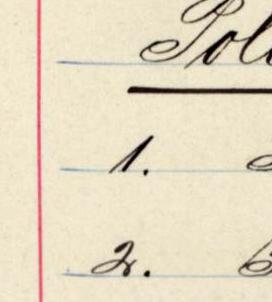 Pol
1.
2.